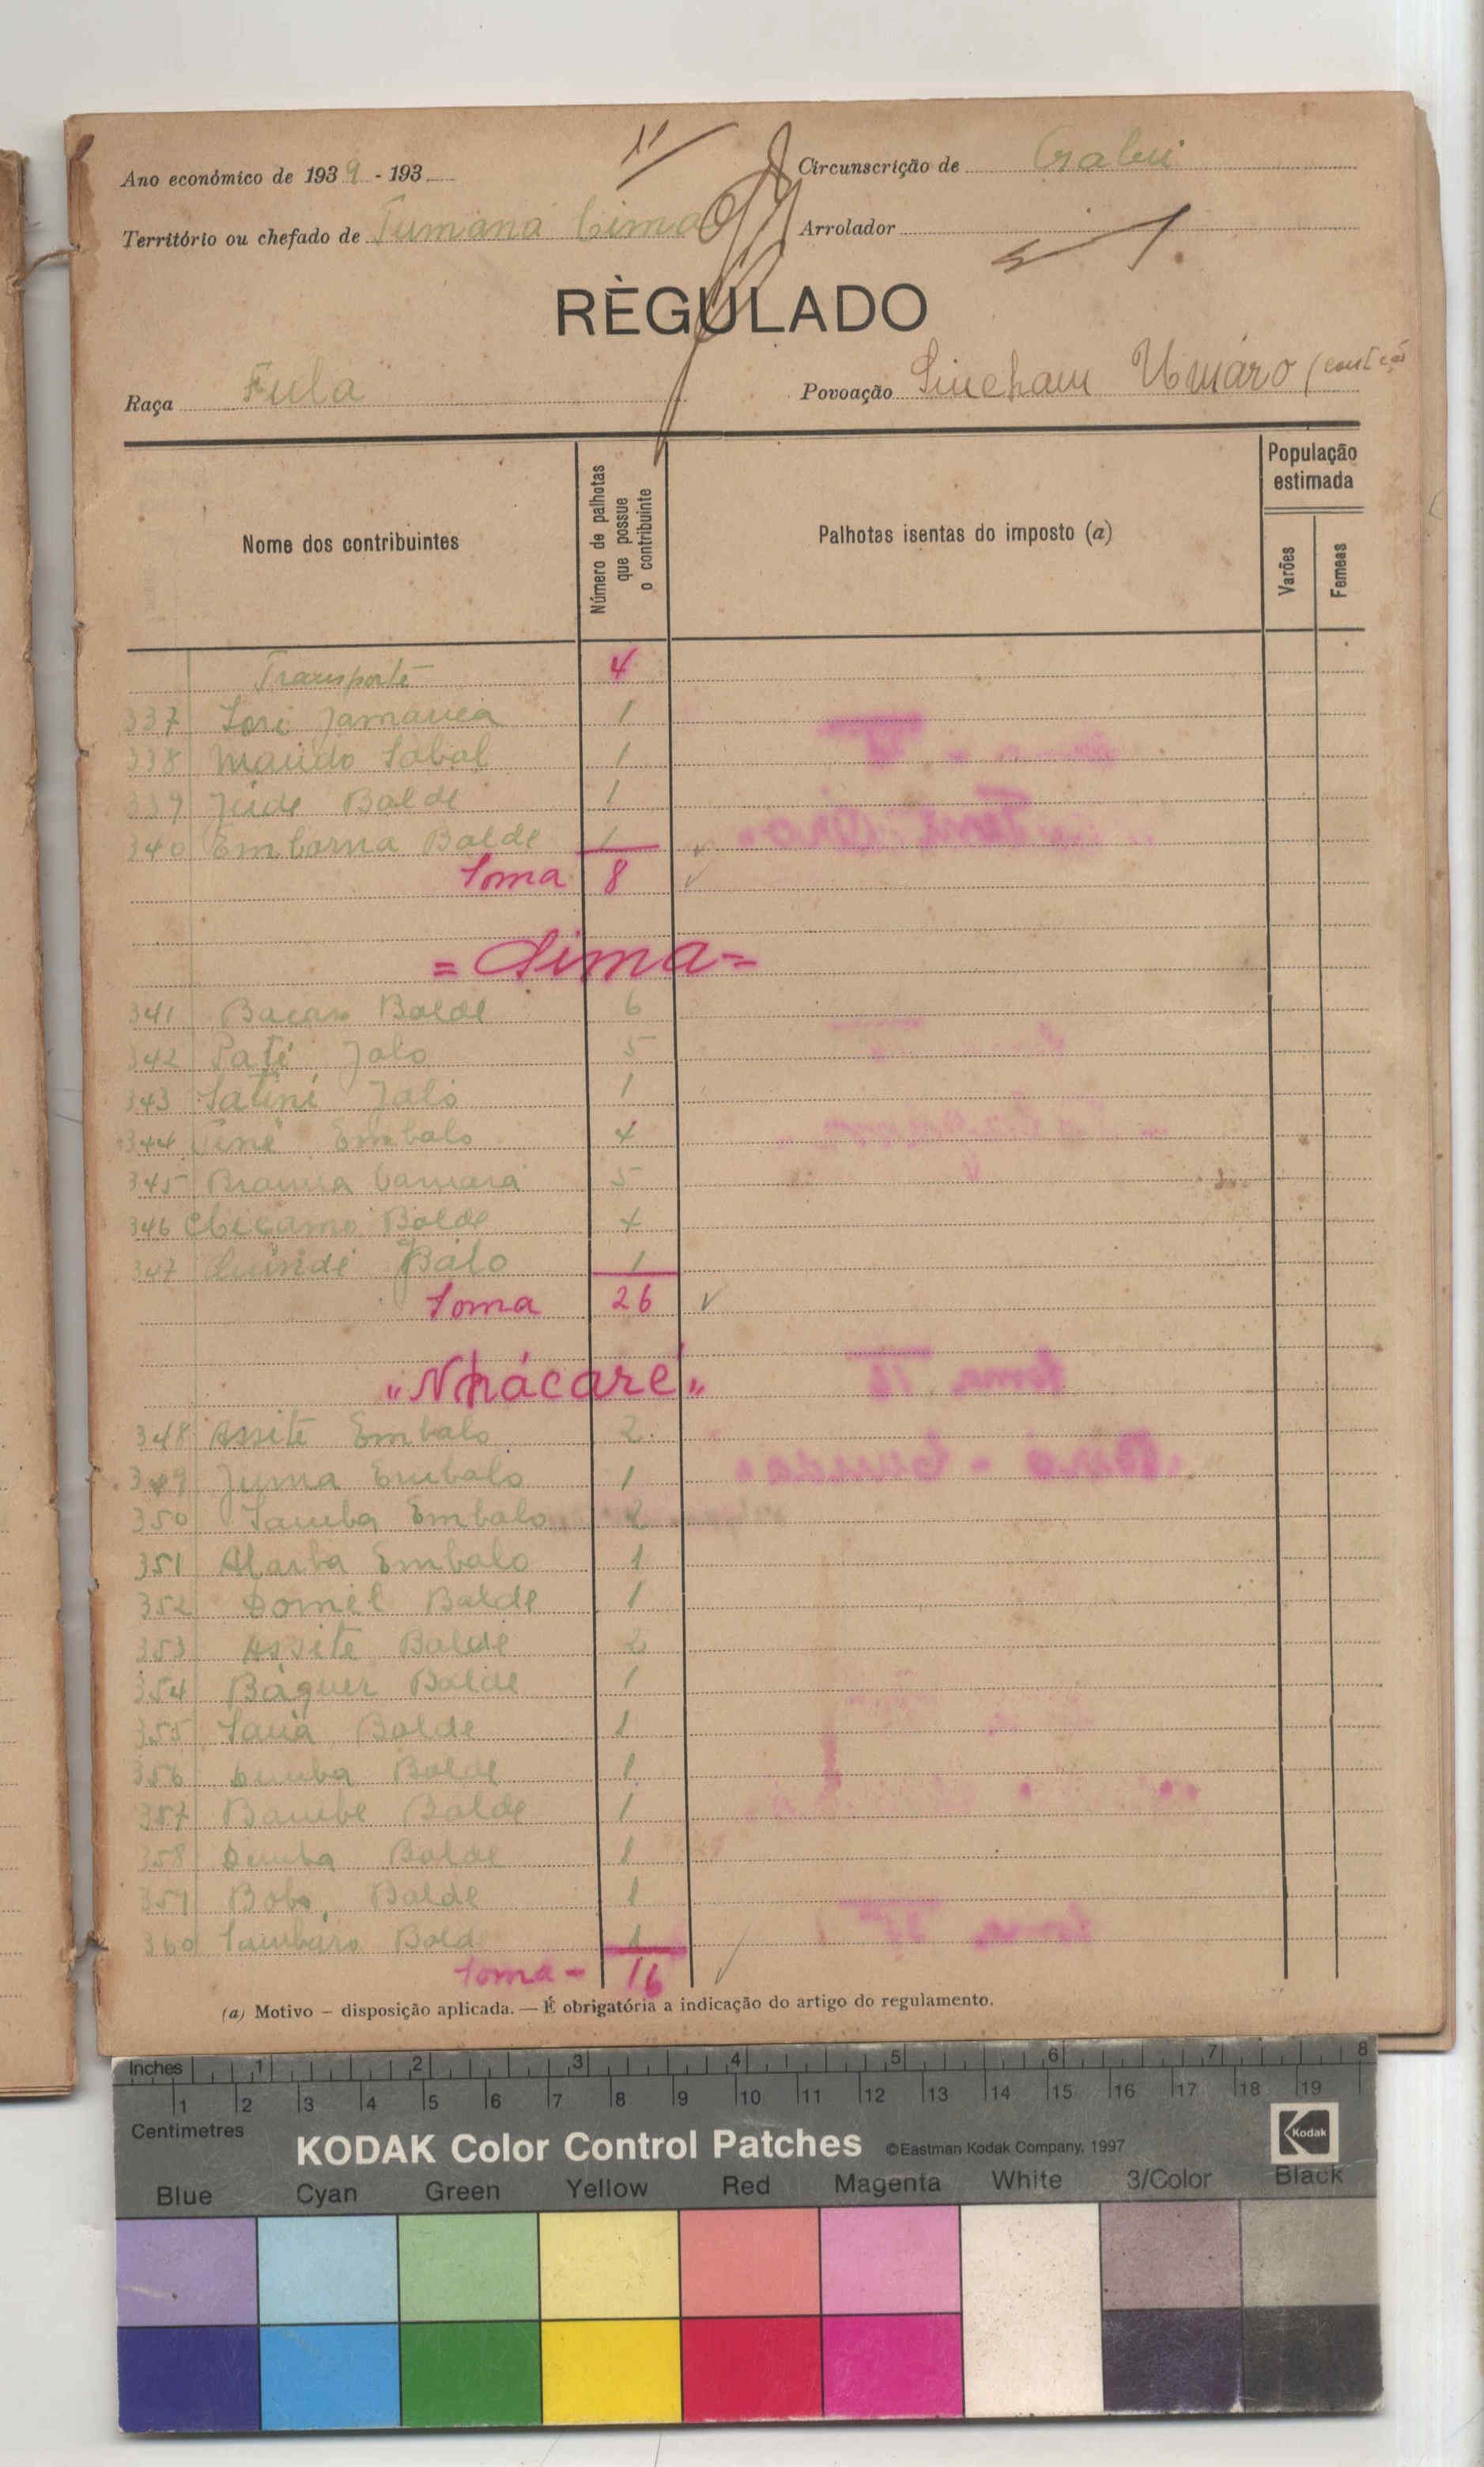 Ano económico de 1939 - 193
Circunscrição de Gabú
Território ou chefado de Tumaná Cima
Arrolador
RÈGULADO
Raça Fula
Povoação Sincham Umáro
Nome dos contribuintes
Número de palhotas que possue o contribuinte
Palhotas isentas do imposto (a)
População estimada
Varões
Femeas
Transporte 4
337 Jamanca 1
338 Maudo Sabal 1
339 Jude Balde 1
340 Embarna Balde 1
Soma 8
= Sima =
341 Bacar Balde 6
342 Paté Jalo 5
343 Jaló 1
344 Embalo 4
345 Camará 5
346 Balde 4
347 1
Soma 26
"Nhácaré"
348 Assite Embalo 2
349 Juma Embalo 1
350 Samba Embalo 2
351 Embalo 1
352 Domel Balde 1
353 Assite Balde 2
354 Báquer Balde 1
355 Balde 1
356 Demba Balde 1
357 Bambe Balde 1
358 Demba Balde 1
359 Bobo Balde 1
360 Sambaro Bald 1
Soma - 16
(a) Motivo — disposição aplicada. — É obrigatória a indicação do artigo do regulamento.
Inches 1 2 3 4 5 6 7 8
1 2 3 4 5 6 7 8 9 10 11 12 13 14 15 16 17 18 19
Centimetres
KODAK Color Control Patches
©Eastman Kodak Company, 1997
Kodak
Blue Cyan Green Yellow Red Magenta White 3/Color Black